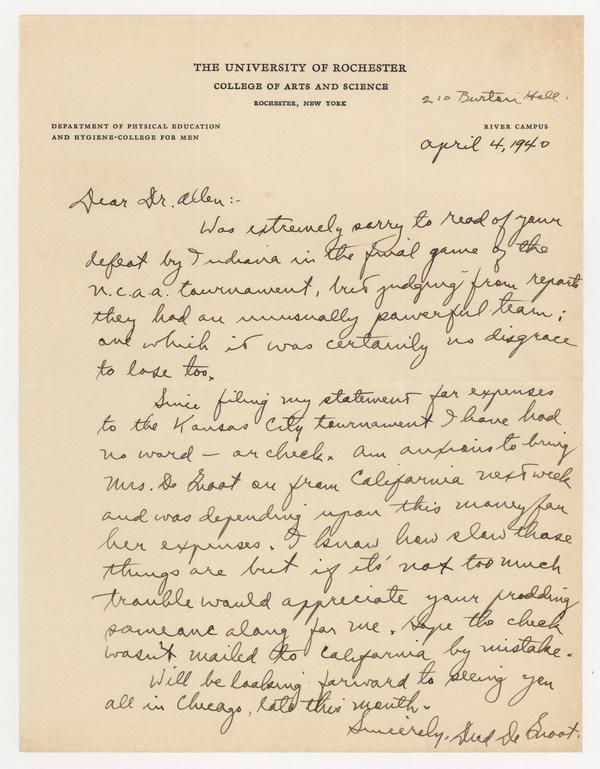 THE UNIVERSITY OF ROCHESTER
COLLEGE OF ARTS AND SCIENCE
ROCHESTER, NEW YORK
210 Burton Hall.
DEPARTMENT OF PHYSICAL EDUCATION
AND HYGIENE-COLLEGE FOR MEN
RIVER CAMPUS
April 4, 1940
Dear Dr. Allen:-
Was extremely sorry to read of your
defeat by Indiana in the final game of the
N.C.A.A. tournament, but judging from reports
they had an unusually powerful team;
one which it was certainly no disgrace
to lose too.
Since filing my statement for expenses
to the Kansas City tournament I have had
no word - or check. Am anxious to bring
Mrs. De Groot on from California next week
and was depending upon this money for
her expenses. I know how slow those
things are but if its' not too much
trouble would appreciate your prodding
someone along for me. Hope the check
wasn't mailed to California by mistake.
Will be looking forward to seeing you
all in Chicago, late this month.
Sincerely, Dud De Groot.